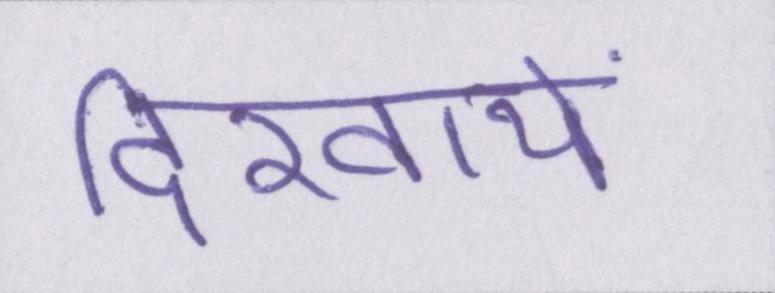 दिखायें